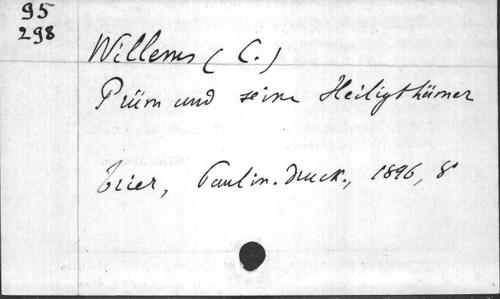 95
298
Willems (C.)
Prüm und seine Heiligthümer
Trier, Paulin. Druck., 1896, 8°